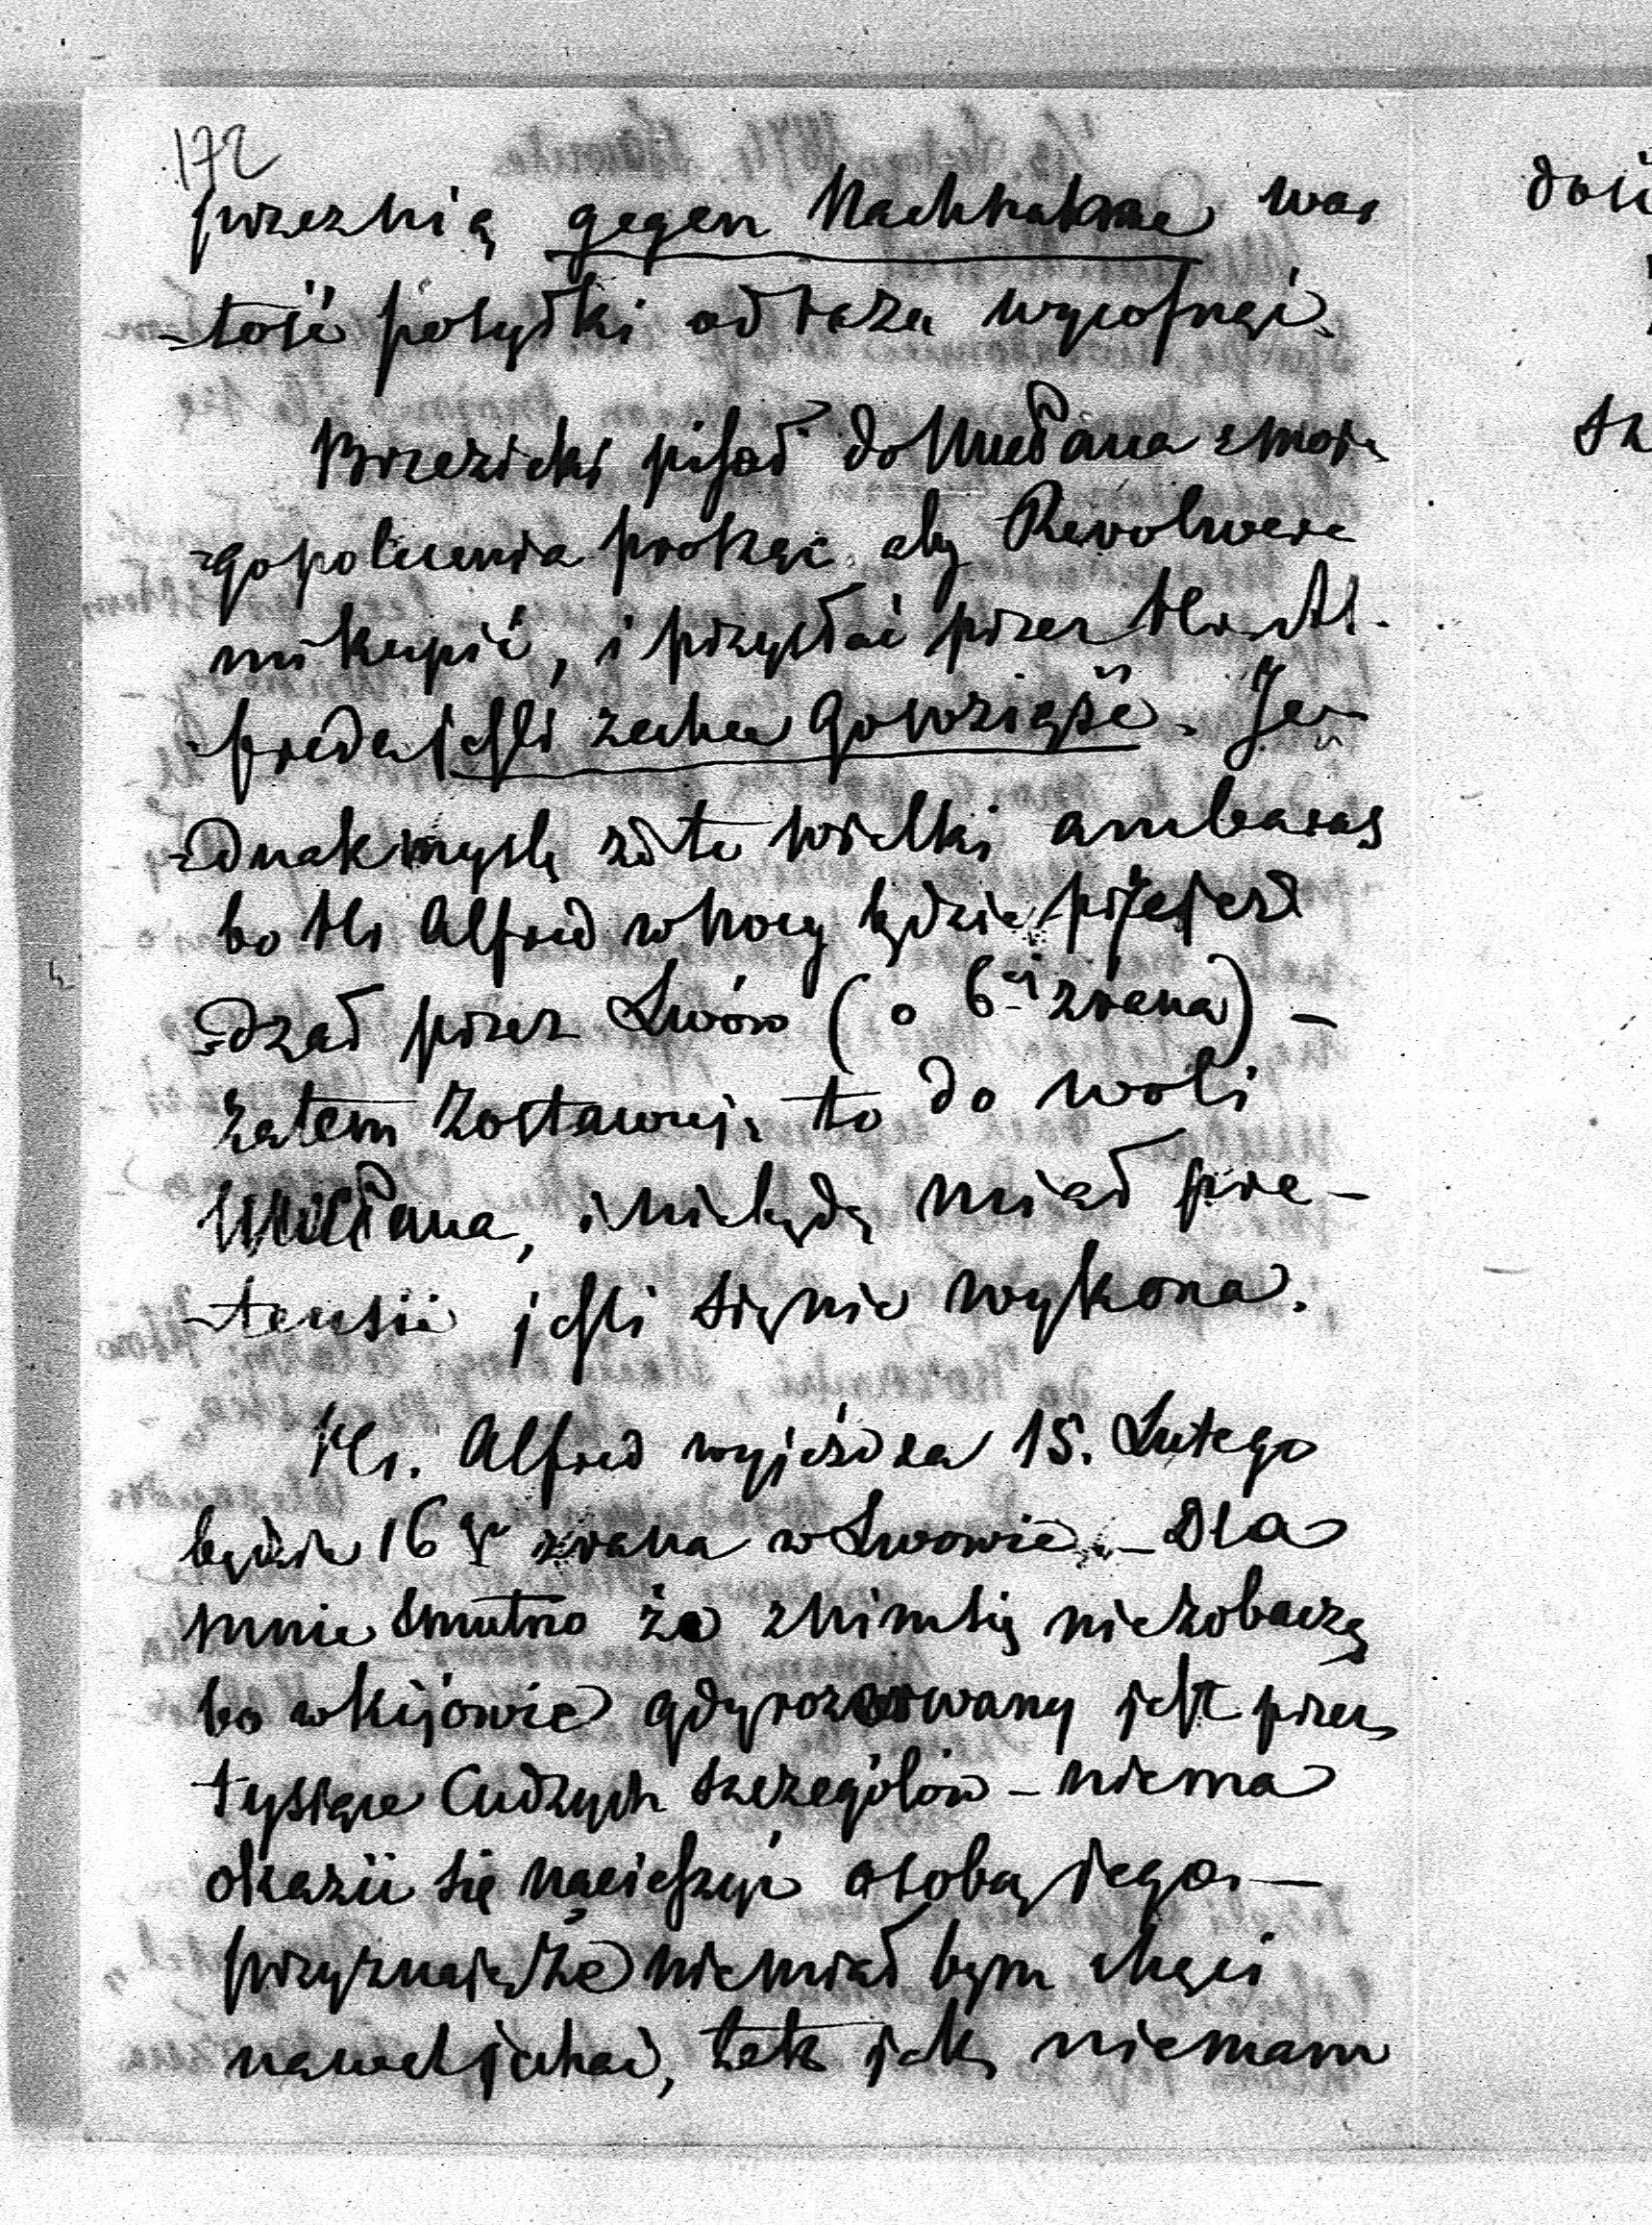 172
gegen Nachnahme war
-tość posyłki od razu wycofnąć.
Brzezicki pisał do Mułłana z moje
-go polecenia prosząc aby Rewolwera
mi kupić, i przysłać przez Hr. Al-
freda jeśli zechce go wziąść. Je-
-dnak myślę że to wielki ambaras
bo Hr Alfred w nocy będzie przejeż
-dżał przez Lwów (o 6ej zrana) -
zatem zostawuję to do woli
, i nie będę miał pre-
-tensii jeśli się nie wykona.
Hr. Alfred wyjeżdża 15. Lutego
będzie 16go zrana w Lwowie. - Dla
mnie smutno że z nim się nie zobaczę
bo w Kijowie gdy rozerwany jest przez
tysiące cudzych szczegółów - niema
okazii się nacieszyć osobą jego -
przyznaję że nie miał bym chęci
nawet jechać, tak jak niemam